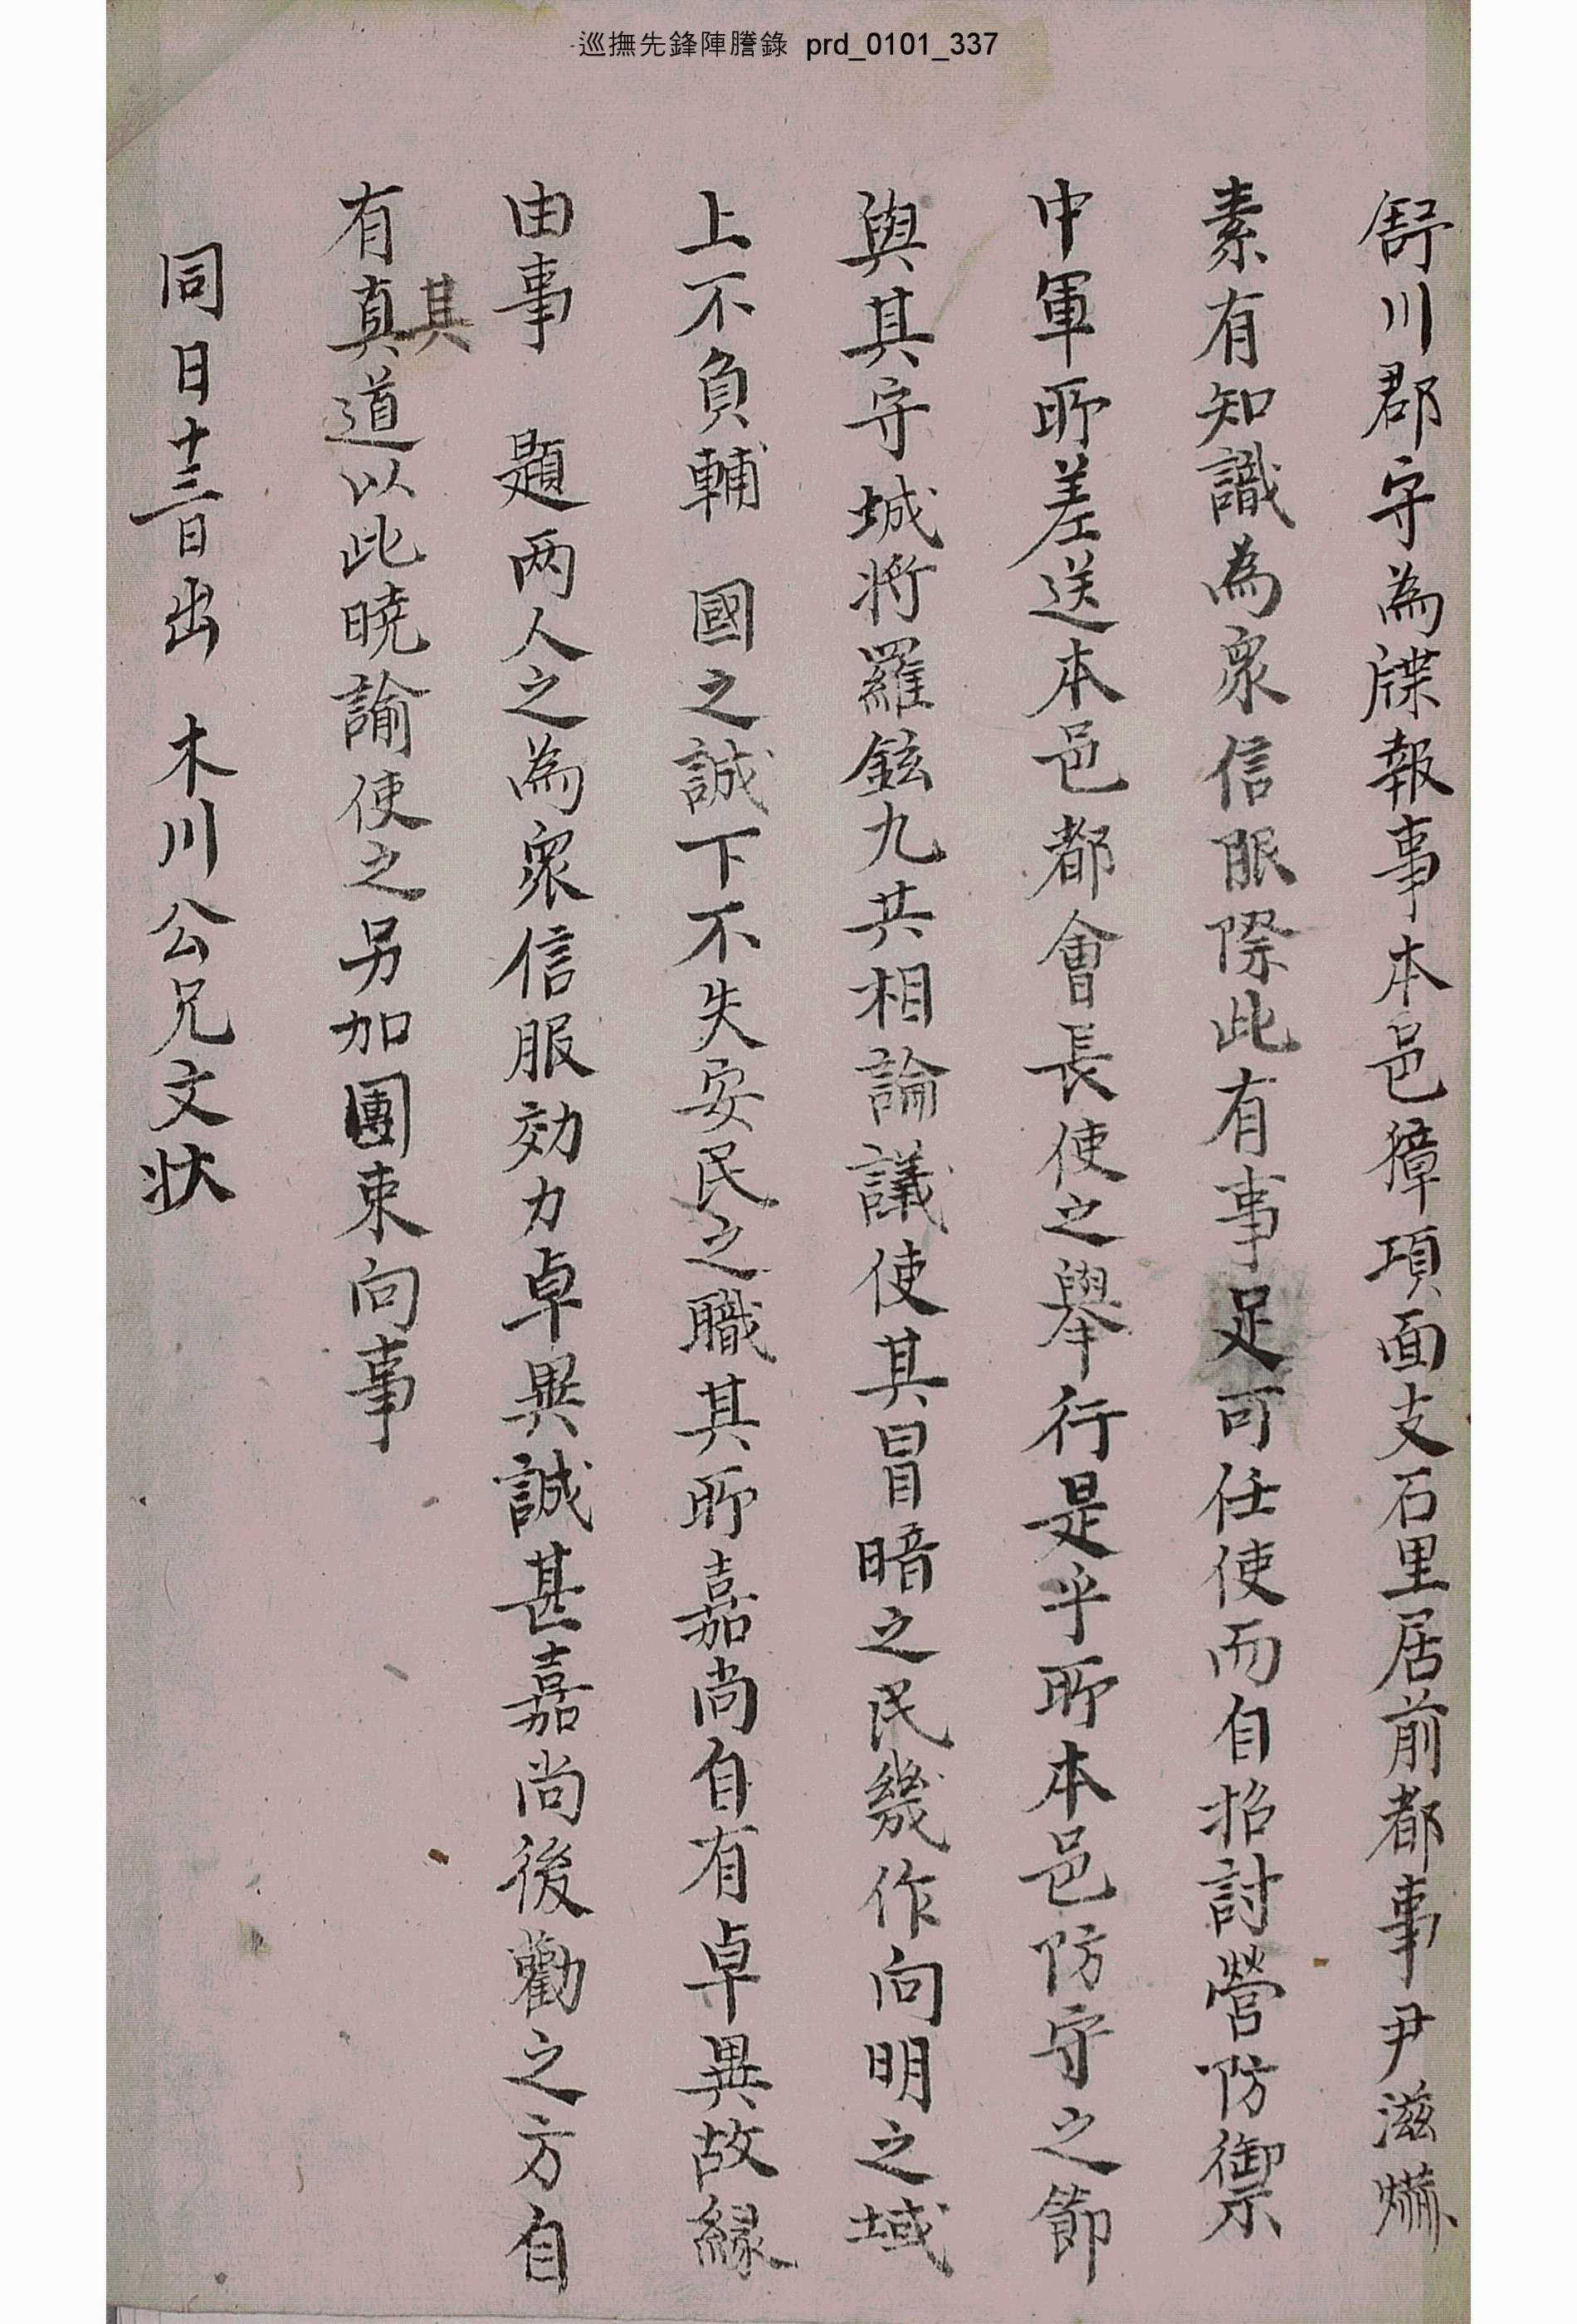 巡撫先鋒陣謄錄 prd_0101_337
舒川郡守為牒報事本邑獐項面支石里居前都事尹滋
素有知識為衆信服際此有事足可任使而自招討營防禦
中軍所差送本邑都會長使之擧行是乎所本邑防守之節
與其守城將羅鉉九共相論議使其冒暗之民幾作向明之域
上不負輔 國之誠下不失安民之職其所嘉尚自有卓異故緣
由事 題两人之為衆信服効力卓異誠甚嘉尚後勸之方自
其
有真道以此曉諭使之另加團束向事
同日十三日出 木川公兄文状